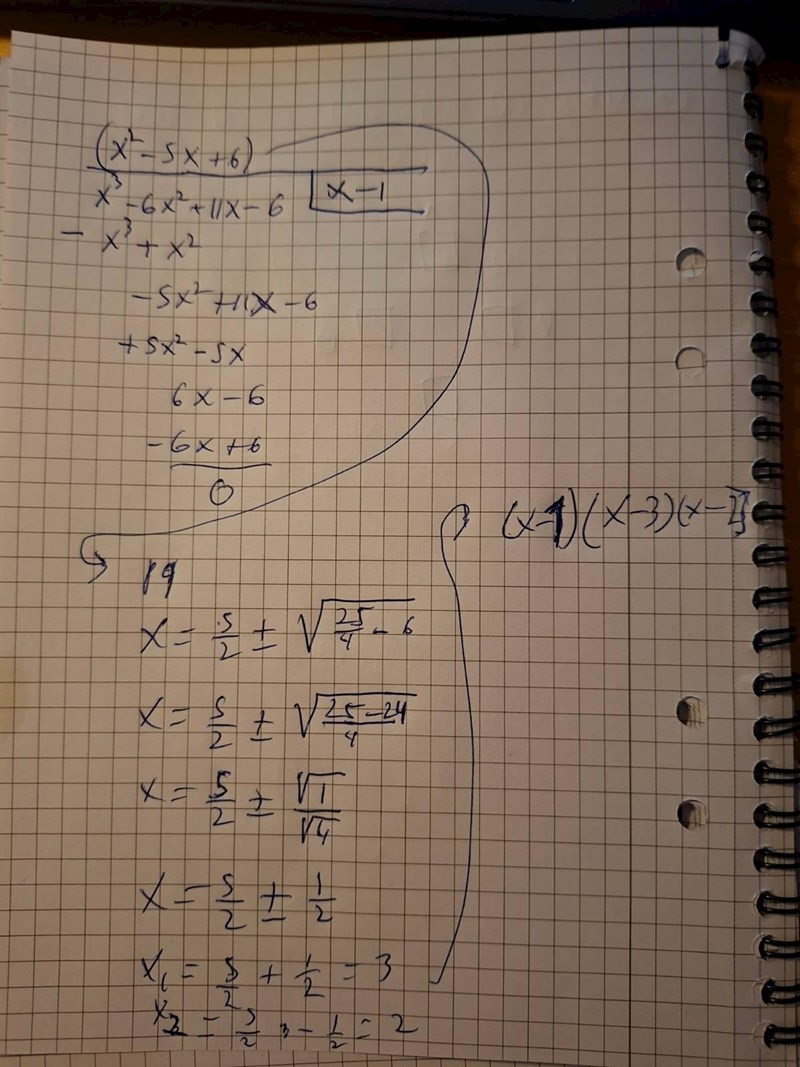 (x² - 5x + 6)
x³ - 6x² + 11x - 6 | x - 1
- x³ + x²
- 5x² + 11x - 6
+ 5x² - 5x
6x - 6
- 6x + 6
0
(x-1)(x-3)(x-2)
x = 5/2 ± √(25/4 - 6)
x = 5/2 ± √((25-24)/4)
x = 5/2 ± √1/√4
x = 5/2 ± 1/2
x₁ = 5/2 + 1/2 = 3
x₂ = 5/2 - 1/2 = 2